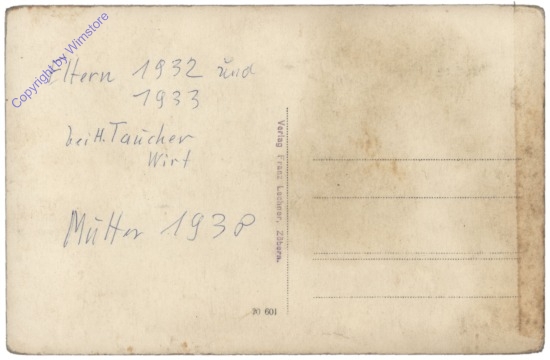 Copyright by Wimstore
Eltern 1932 und
1933
bei H. Taucher
Wirt
Mutter 1938
Verlag Franz Lechner, Zöbern.
20 601